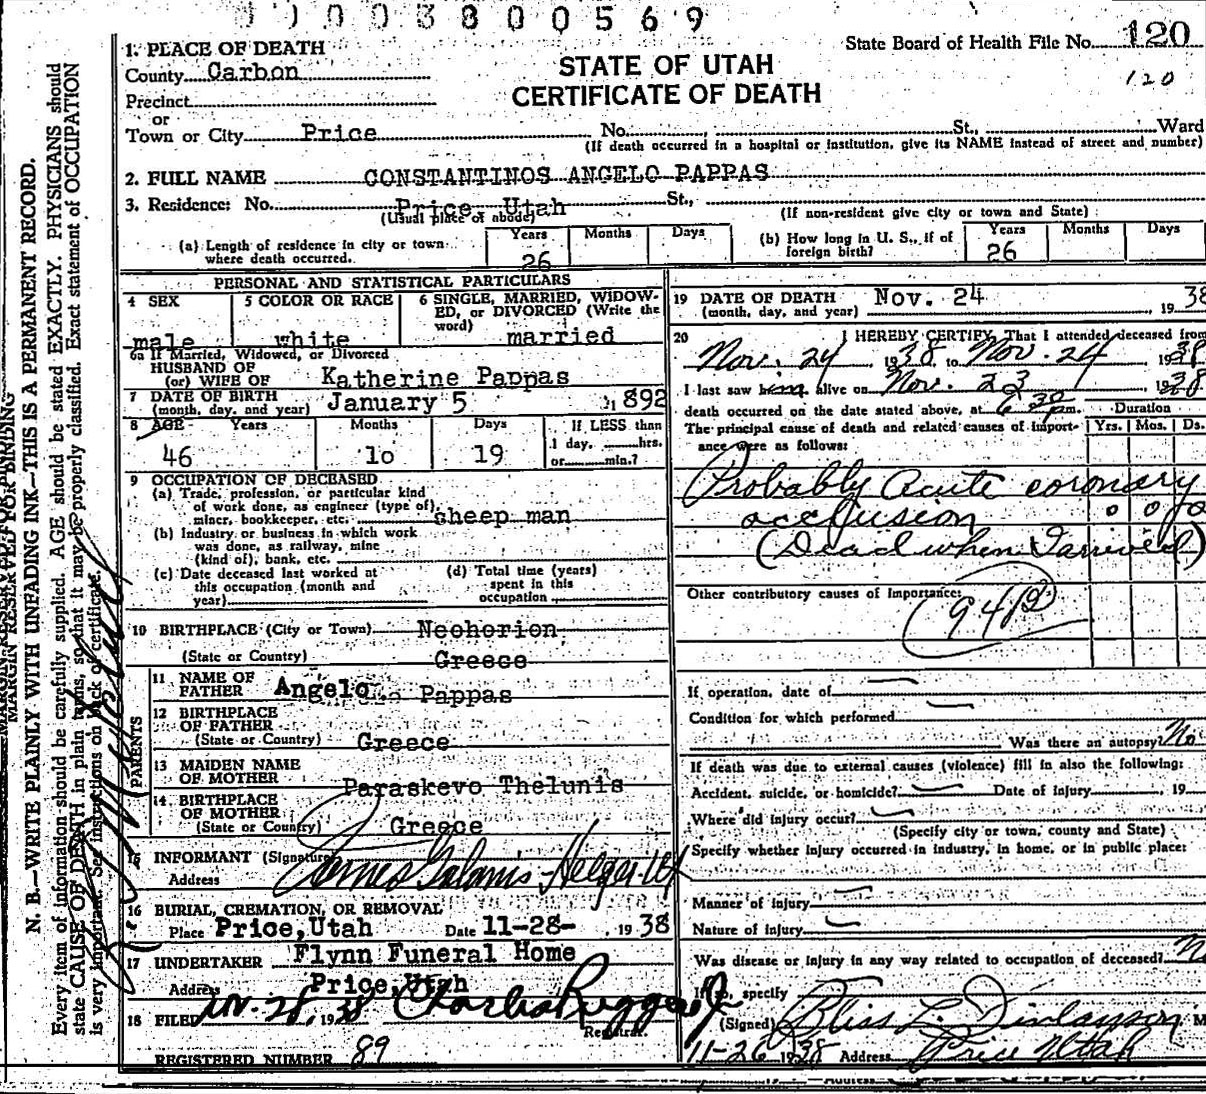 0003800569
State Board of Health File No. 120
120
1. PLACE OF DEATH
County Carbon
STATE OF UTAH
Precinct
CERTIFICATE OF DEATH
or
Town or City Price No. , St., Ward
(If death occurred in a hospital or institution, give its NAME instead of street and number)
2. FULL NAME CONSTANTINOS ANGELO PAPPAS
3. Residence: No. Price Utah St.,
(Usual place of abode) (If non-resident give city or town and State)
(a) Length of residence in city or town where death occurred. Years 26 Months Days
(b) How long in U. S., if of foreign birth? Years 26 Months Days
PERSONAL AND STATISTICAL PARTICULARS
4 SEX male
5 COLOR OR RACE white
6 SINGLE, MARRIED, WIDOWED, or DIVORCED (Write the word) married
6a If Married, Widowed, or Divorced
HUSBAND OF
(or) WIFE OF Katherine Pappas
7 DATE OF BIRTH
(month, day, and year) January 5 1892
8 AGE Years Months Days If LESS than
46 10 19 1 day, hrs.
or min.?
9 OCCUPATION OF DECEASED
(a) Trade, profession, or particular kind
of work done, as engineer (type of)
miner, bookkeeper, etc. sheep man
(b) Industry or business in which work
was done, as railway, mine
(kind of), bank, etc.
(c) Date deceased last worked at
this occupation (month and
year)
(d) Total time (years)
spent in this
occupation
10 BIRTHPLACE (City or Town) Neohorion
(State or Country) Greece
PARENTS
11 NAME OF
FATHER Angelo Pappas
12 BIRTHPLACE
OF FATHER
(State or Country) Greece
13 MAIDEN NAME
OF MOTHER Paraskevo Thelunis
14 BIRTHPLACE
OF MOTHER
(State or Country) Greece
15 INFORMANT (Signature) James Galanis - Helper-Ut
Address
16 BURIAL, CREMATION, OR REMOVAL
Place Price, Utah Date 11-28- , 1938
17 UNDERTAKER Flynn Funeral Home
Address Price, Utah
18 FILED Nov. 28, 1938
Registrar.
REGISTERED NUMBER 89
19 DATE OF DEATH Nov. 24
(month, day, and year) 1938
20 I HEREBY CERTIFY, That I attended deceased from
Nov. 24 1938 to Nov. 24 1938
I last saw him alive on Nov. 23 1938
death occurred on the date stated above, at 6 30 pm. Duration
The principal cause of death and related causes of import- Yrs. Mos. Ds.
ance were as follows:
Probably acute coronary
occlusion 0 0 0
(Dead when I arrived)
Other contributory causes of Importance:
If operation, date of
Condition for which performed
Was there an autopsy? No
If death was due to external causes (violence) fill in also the following:
Accident, suicide, or homicide? Date of injury , 19
Where did injury occur?
(Specify city or town, county and State)
Specify whether injury occurred in industry, in home, or in public place:
Manner of injury
Nature of injury
Was disease or injury in any way related to occupation of deceased? No
If so, specify
(Signed) Bliss L. Finlayson M
11-26 1938 Address Price Utah
MARGIN RESERVED FOR BINDING
N. B.—WRITE PLAINLY WITH UNFADING INK—THIS IS A PERMANENT RECORD.
Every item of information should be carefully supplied. AGE should be stated EXACTLY. PHYSICIANS should
state CAUSE OF DEATH in plain terms, so that it may be properly classified. Exact statement of OCCUPATION
is very important. See instructions on back of certificate.